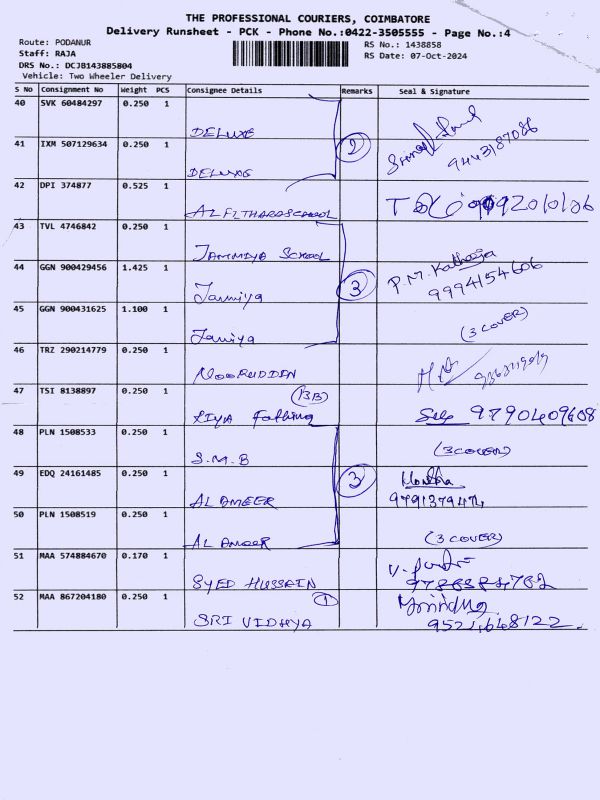 THE PROFESSIONAL COURIERS, COIMBATORE
Delivery Runsheet - PCK - Phone No.:0422-3505555 - Page No.:4
Route: PODANUR
RS No.: 1438858
Staff: RAJA
RS Date: 07-Oct-2024
DRS No.: DCJB143885804
Vehicle: Two Wheeler Delivery
S No Consignment No Weight PCS Consignee Details Remarks Seal & Signature
40 SVK 60484297 0.250 1
DELUXE
41 IXM 507129634 0.250 1 2
9443187086
DELUXE
42 DPI 374877 0.525 1
SCHOOL
43 TVL 4746842 0.250 1
JAMMIYA SCHOOL
44 GGN 900429456 1.425 1 3 P.M. Kathaja
9994154606
Jamiya
45 GGN 900431625 1.100 1 (3 COVER)
Jamiya
46 TRZ 290214779 0.250 1
NOORUDDEN
47 TSI 8138897 0.250 1 (BB)
RIYA Fathima 9790409608
48 PLN 1508533 0.250 1 (3COVER)
S.M.B
49 EDQ 24161485 0.250 1 3
AL AMEER
50 PLN 1508519 0.250 1 (3 COVER)
AL AMEER
51 MAA 574884670 0.170 1
SYED HUSSAIN
52 MAA 867204180 0.250 1 1
SRI VIDHYA 9521648122